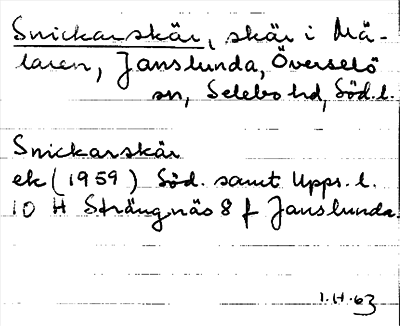 Snickarskär, skär i Mä-
laren, Janslunda, Överselö
sn, Selebo hd, Söd. l.
Snickarskär
ek (1959) Söd. samt Upps. l.
10 H Strängnäs 8 f Janslunda.
I.H.63